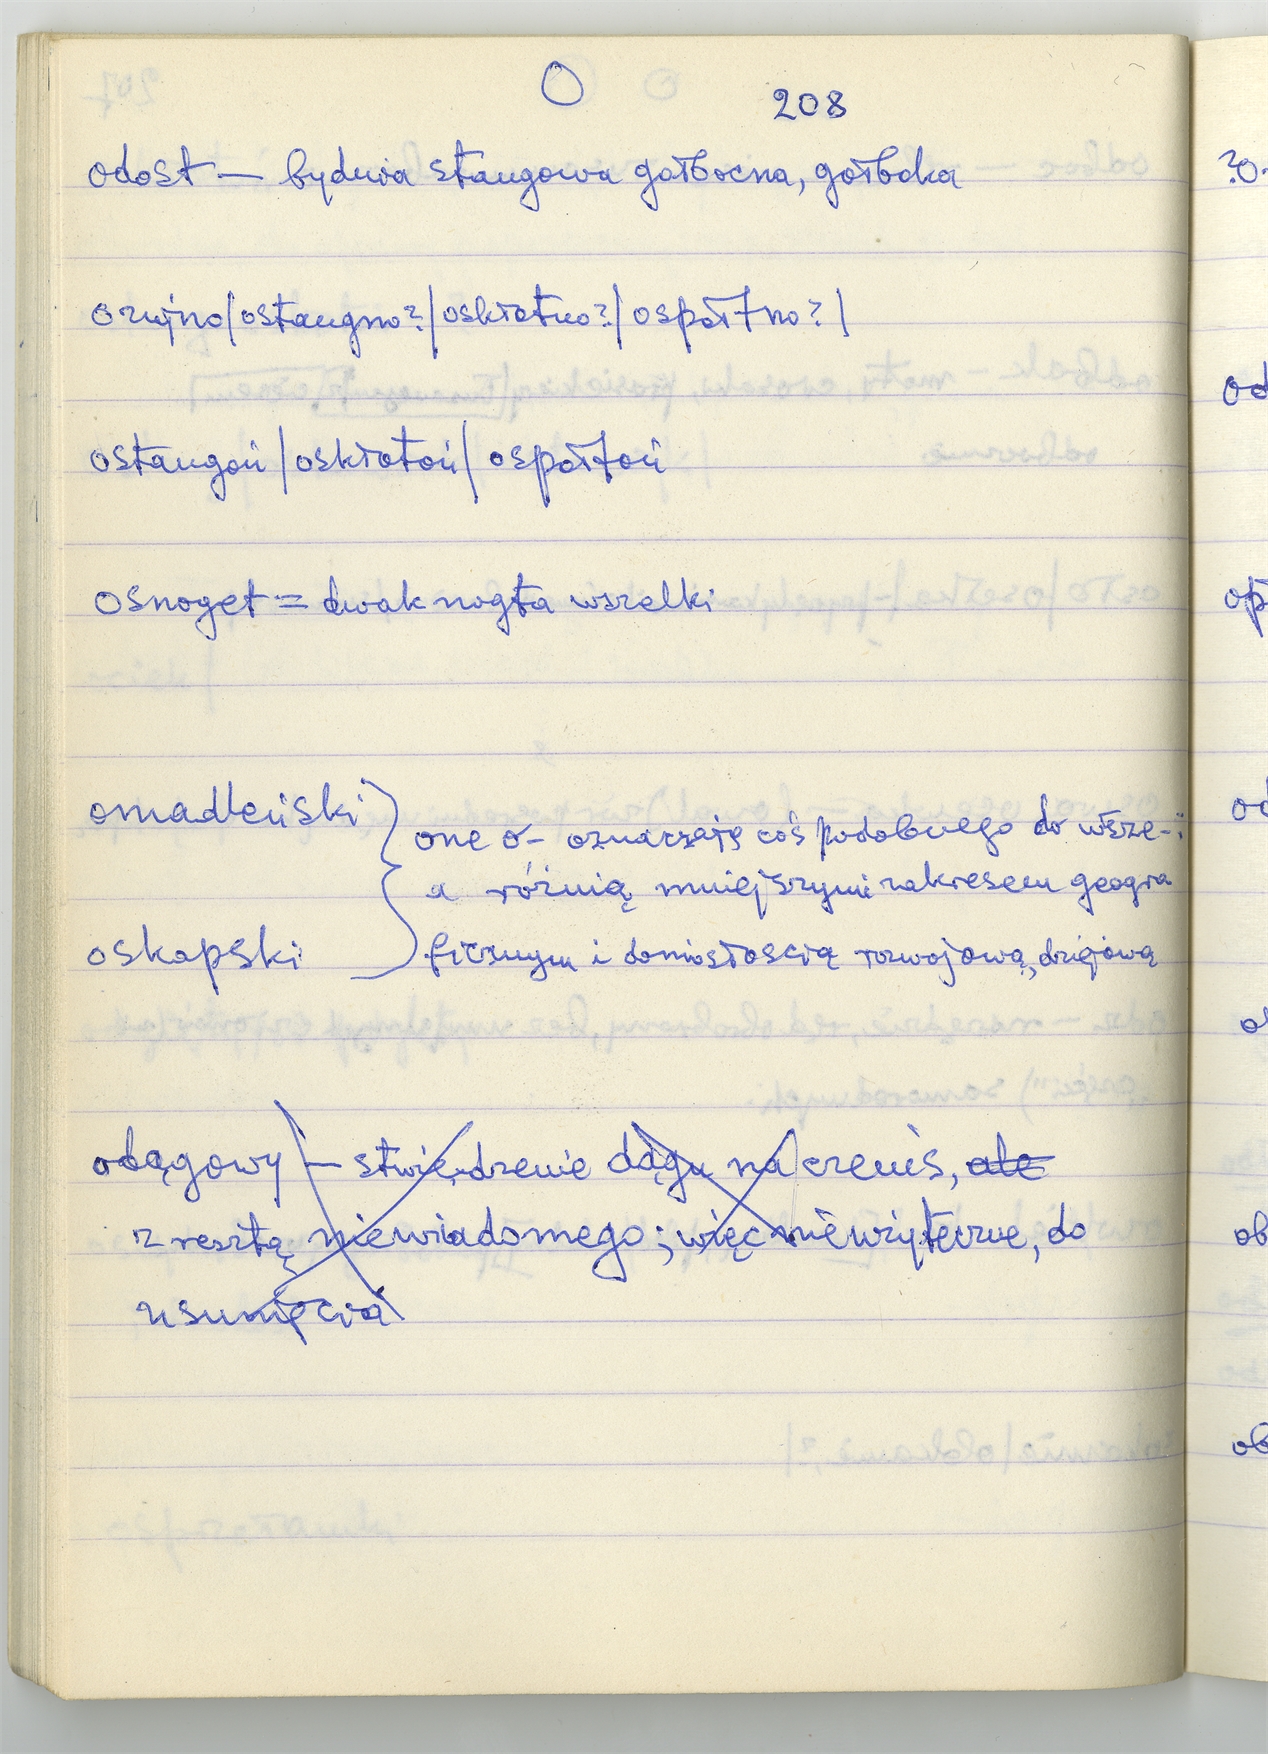 O
208
odost — bydwia stangowa gałbocna, gałboka
ozwjno/ostangno?/oskłotno?/ospółtno?/
ostangoń/oskłotoń/ospółtoń
osnoget = dwak nogta wszelki
omadleński
one o- oznaczają coś podobnego do wsze-
a różnią mniejszymi zakresem geogra
oskapski
ficznym i doniosłością rozwojową, dziejową
odągowy — stwierdzenie dągu na czemś, ale
z resztą niewiadomego; więc niewżyteczne, do
usunięcia
?o.
od
op
od
ob
ob